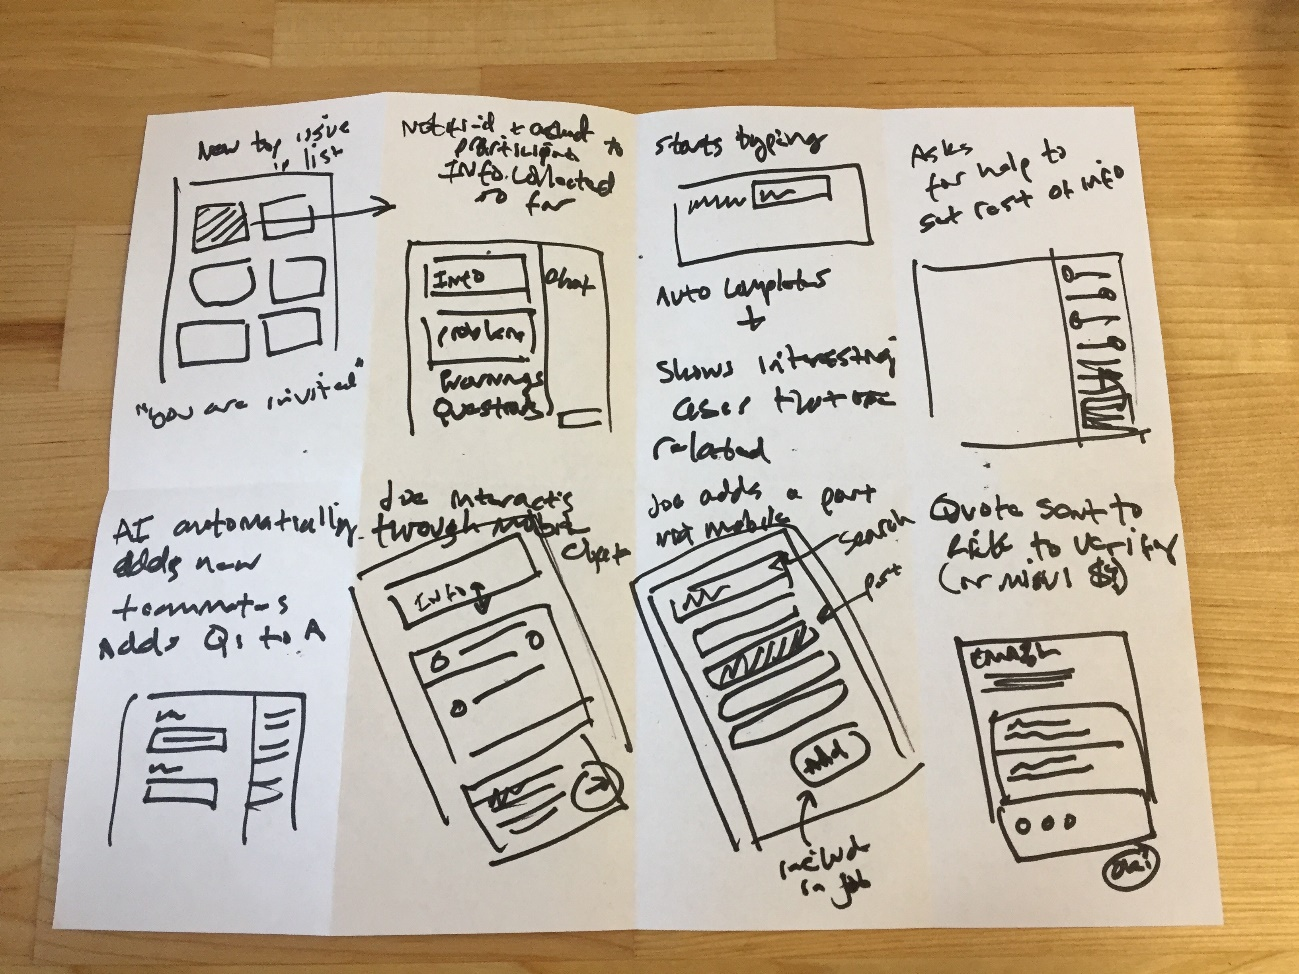 New top issue
in list
"You are invited"
+ asked
participant to
Info collected
so far
Info
Chat
Problem
Warnings
Questions
Starts typing
Auto completes
+
Shows interesting
cases that are
related
Asks
for help to
get rest of info
AI automatically
adds new
teammates
Adds Qs to A
Joe interacts
through mobile
Info
Joe adds a part
via mobile
search
part
Add
include
in job
Quote sent to
Rick to verify
email